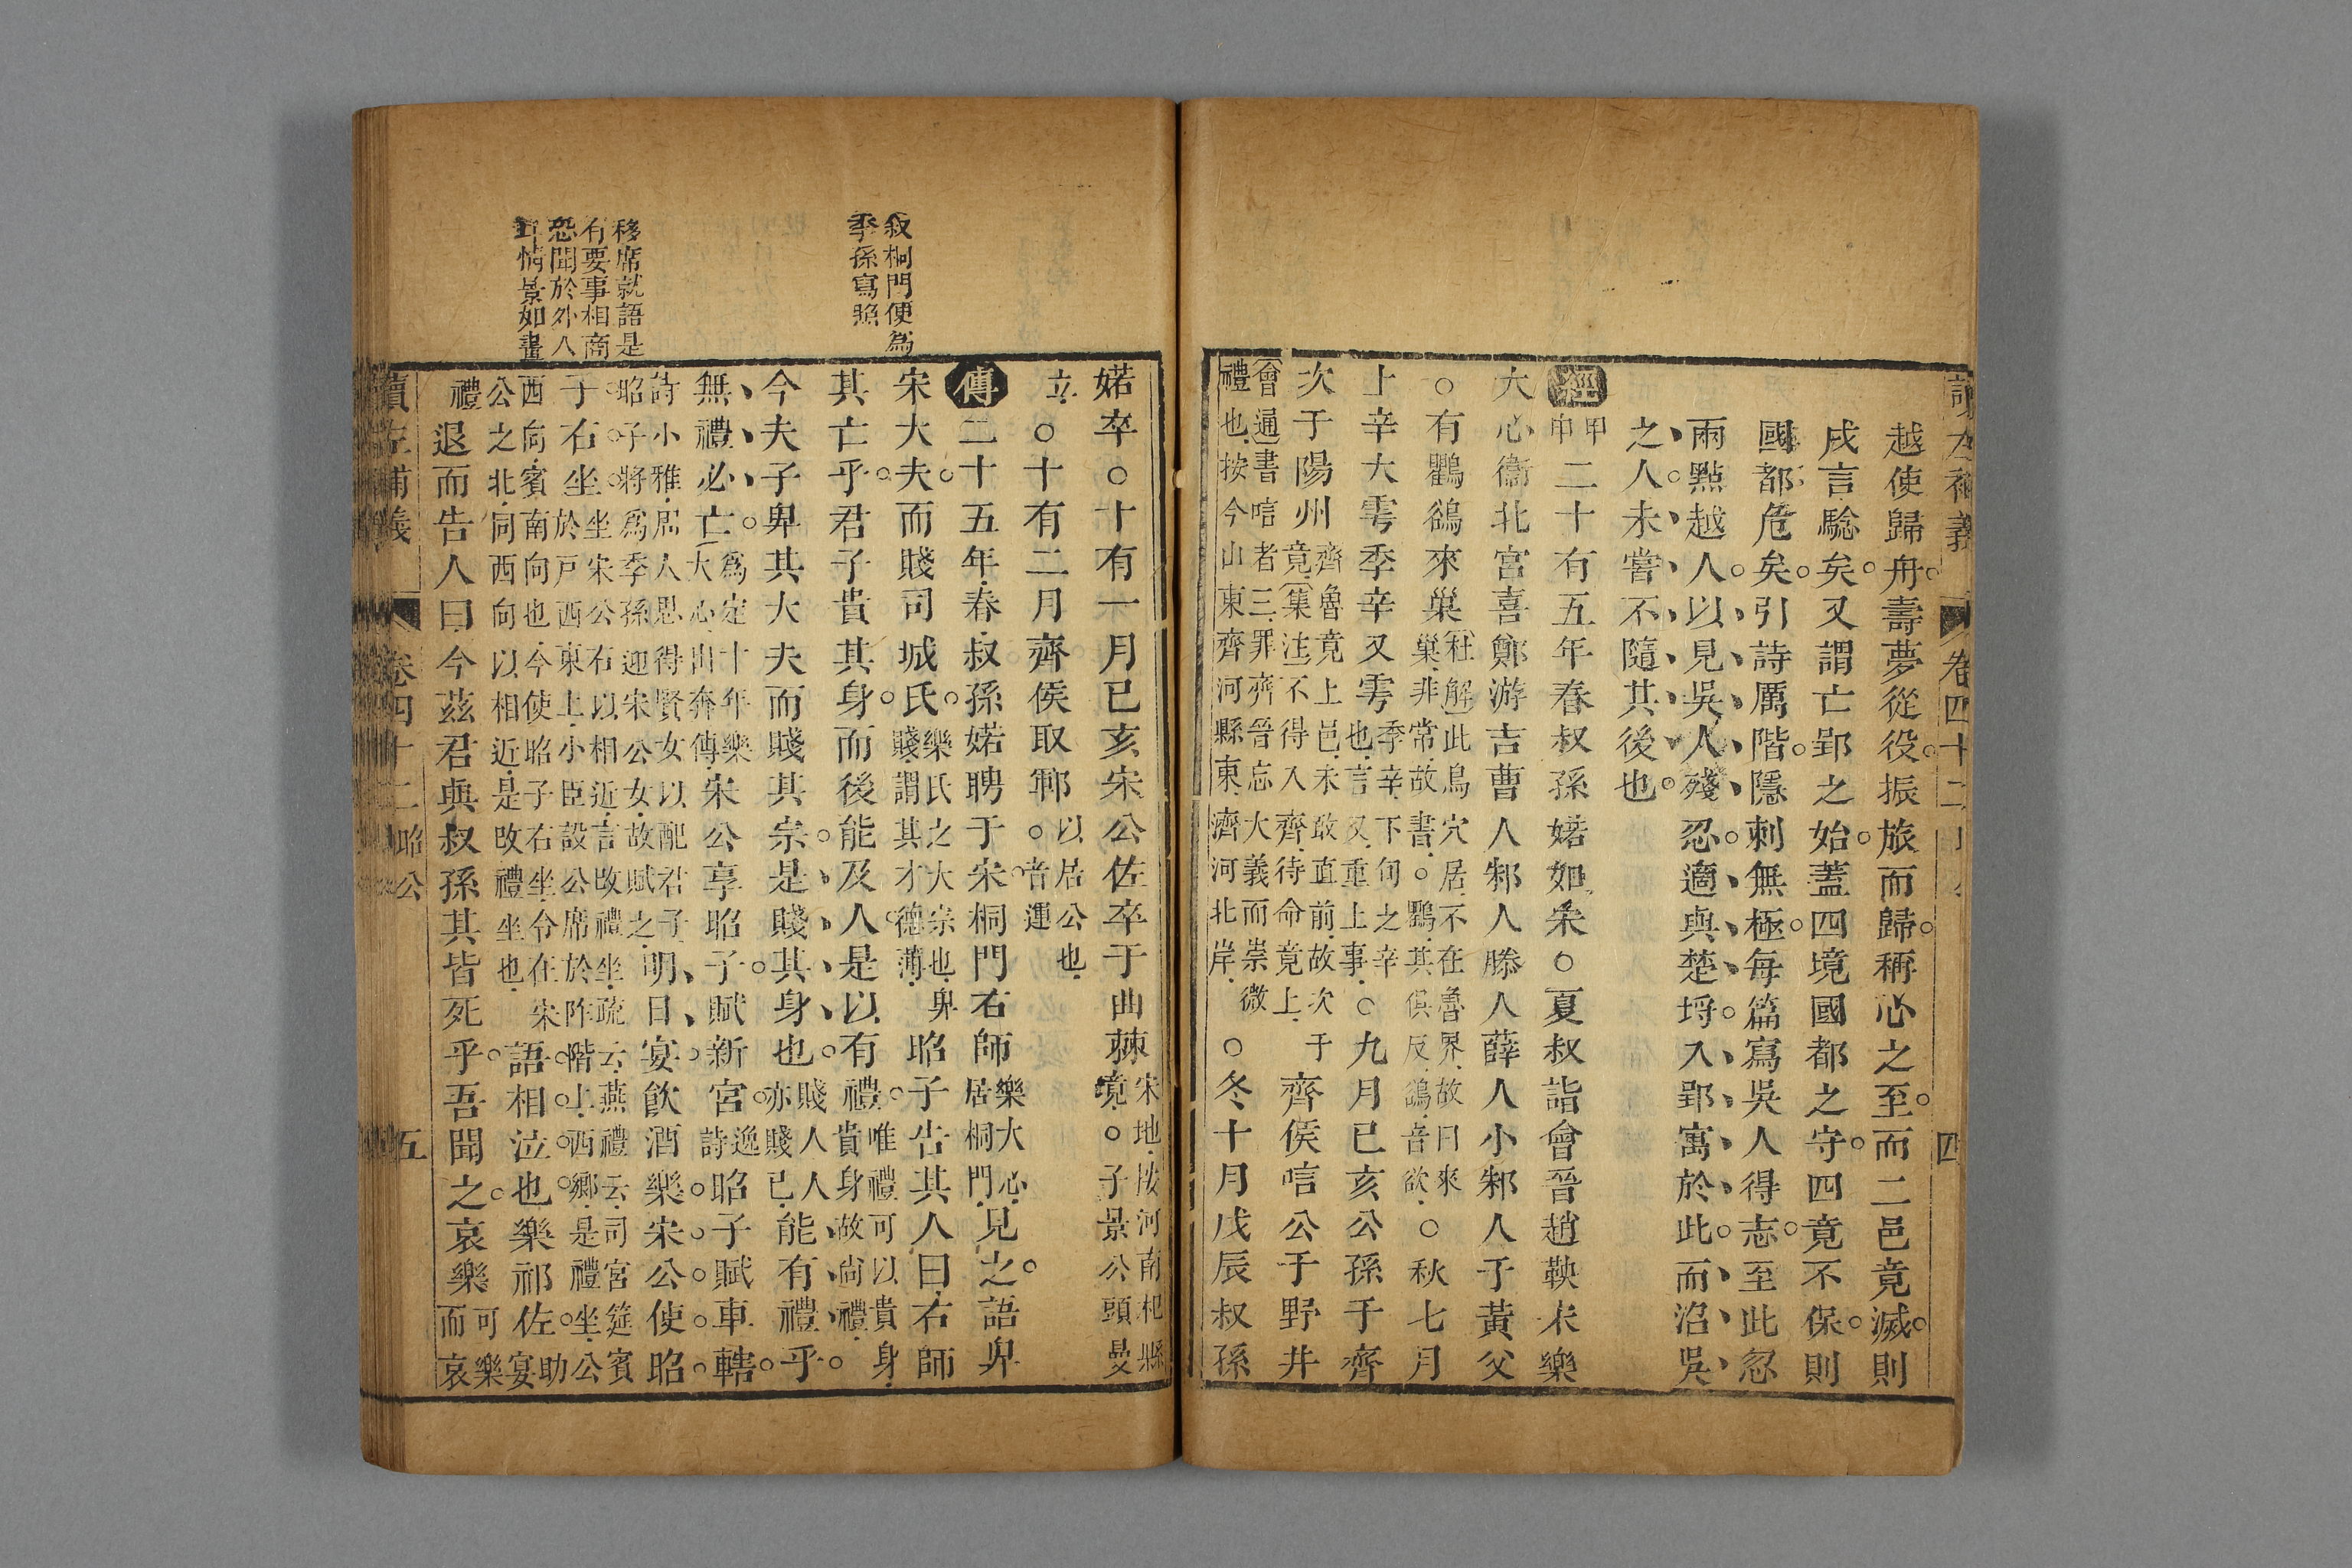 越使歸舟壽夢從役振旅而歸稱心之至而二邑竟滅則
戌言驗矣又謂亡郢之始蓋四境國都之守四竟不保則
國都危矣引詩厲階隱刺無極每篇寫吳人得志至此忽
兩點越人以見吳人殘忍適與楚埒入郢寓於此而沼吳
之人未嘗不隨其後也
經甲申二十有五年春叔孫婼如宋○夏叔詣會晉趙鞅宋樂
大心衞北宮喜鄭游吉曹人邾人滕人薛人小邾人于黃父
○有鸜鵒來巢杜解此鳥穴居不在魯界故曰來巢非常故書○鸜其俱反鵒音欲○秋七月
上辛大雩季辛又雩季辛下旬之辛也言又重上事○九月己亥公孫于齊
次于陽州齊魯竟上邑未敢直前故次于竟集注不得入齊待命竟上齊侯唁公于野井
會通書唁者三罪齊晉忘大義而崇微禮也按今山東齊河縣東濟河北岸○冬十月戊辰叔孫
婼卒○十有一月己亥宋公佐卒于曲棘宋地按河南杞縣境○子景公頭曼
立○十有二月齊侯取鄆以居公也○音運
傳二十五年春叔孫婼聘于宋桐門右師樂大心居桐門見之語卑
宋大夫而賤司城氏樂氏之大宗也卑賤謂其才德薄昭子告其人曰右師
其亡乎君子貴其身而後能及人是以有禮唯禮可以貴身貴身故尚禮
今夫子卑其大夫而賤其宗是賤其身也賤人人亦賤已能有禮乎
無禮必亡爲定十年樂大心出奔傳宋公享昭子賦新宮逸詩昭子賦車轄
詩小雅周人思得賢女以配君子昭子將爲季孫迎宋公女故賦之明日宴飲酒樂宋公使昭
子右坐坐宋公右以相近言改禮坐疏云燕禮云司宮筵賓於戶西東上小臣設公席於阼階上西鄉是禮坐公
西向賓南向也今使昭子右坐令在宋公之北同西向以相近是改禮坐也語相泣也樂祁佐助宴
禮退而告人曰今茲君與叔孫其皆死乎吾聞之哀樂而可樂哀
叙桐門便為
季孫寫照
移席就語是
有要事相商
恐聞於外人
情景如畫
讀左補義
卷四十二 昭公
五
讀左補義
卷四十二
四